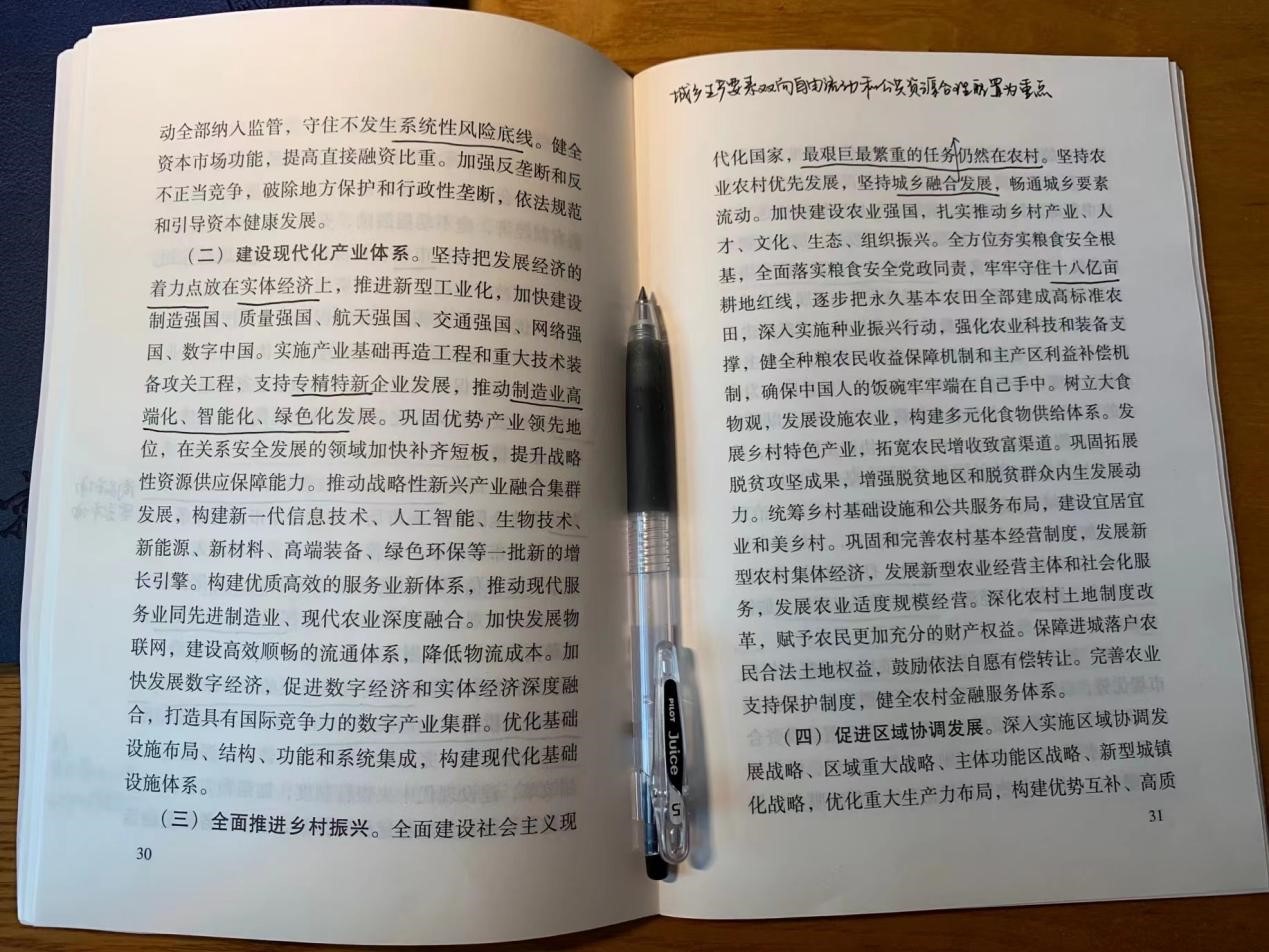 动全部纳入监管，守住不发生系统性风险底线。健全
资本市场功能，提高直接融资比重。加强反垄断和反
不正当竞争，破除地方保护和行政性垄断，依法规范
和引导资本健康发展。
（二）建设现代化产业体系。坚持把发展经济的
着力点放在实体经济上，推进新型工业化，加快建设
制造强国、质量强国、航天强国、交通强国、网络强
国、数字中国。实施产业基础再造工程和重大技术装
备攻关工程，支持专精特新企业发展，推动制造业高
端化、智能化、绿色化发展。巩固优势产业领先地
位，在关系安全发展的领域加快补齐短板，提升战略
性资源供应保障能力。推动战略性新兴产业融合集群
发展，构建新一代信息技术、人工智能、生物技术、
新能源、新材料、高端装备、绿色环保等一批新的增
长引擎。构建优质高效的服务业新体系，推动现代服
务业同先进制造业、现代农业深度融合。加快发展物
联网，建设高效顺畅的流通体系，降低物流成本。加
快发展数字经济，促进数字经济和实体经济深度融
合，打造具有国际竞争力的数字产业集群。优化基础
设施布局、结构、功能和系统集成，构建现代化基础
设施体系。
（三）全面推进乡村振兴。全面建设社会主义现
30
城乡生产要素双向自由流动和公共资源合理配置为重点
代化国家，最艰巨最繁重的任务仍然在农村。坚持农
业农村优先发展，坚持城乡融合发展，畅通城乡要素
流动。加快建设农业强国，扎实推动乡村产业、人
才、文化、生态、组织振兴。全方位夯实粮食安全根
基，全面落实粮食安全党政同责，牢牢守住十八亿亩
耕地红线，逐步把永久基本农田全部建成高标准农
田，深入实施种业振兴行动，强化农业科技和装备支
撑，健全种粮农民收益保障机制和主产区利益补偿机
制，确保中国人的饭碗牢牢端在自己手中。树立大食
物观，发展设施农业，构建多元化食物供给体系。发
展乡村特色产业，拓宽农民增收致富渠道。巩固拓展
脱贫攻坚成果，增强脱贫地区和脱贫群众内生发展动
力。统筹乡村基础设施和公共服务布局，建设宜居宜
业和美乡村。巩固和完善农村基本经营制度，发展新
型农村集体经济，发展新型农业经营主体和社会化服
务，发展农业适度规模经营。深化农村土地制度改
革，赋予农民更加充分的财产权益。保障进城落户农
民合法土地权益，鼓励依法自愿有偿转让。完善农业
支持保护制度，健全农村金融服务体系。
（四）促进区域协调发展。深入实施区域协调发
展战略、区域重大战略、主体功能区战略、新型城镇
化战略，优化重大生产力布局，构建优势互补、高质
31
PILOT Juice 5